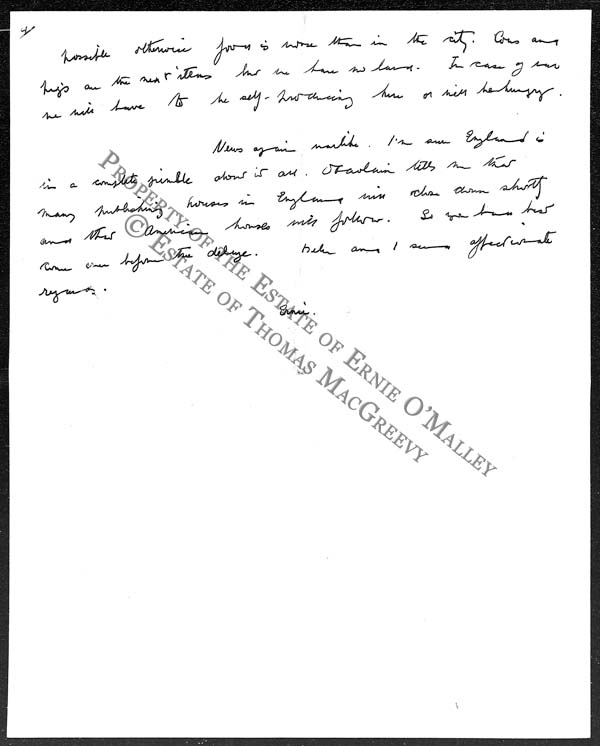 possible otherwise food is worse than in the city. Cows and
pigs are the next items but we have no land. In case of war
we will have to be self-producing here or will be hungry.
News again warlike. I'm sure England is
in a complete about it all. O'Faolain tells me that
many publishing houses in England will close down shortly
and that American houses will follow. So you had best
come over before the deluge. Helen and I send affectionate
regards.
Ernie.
Property of the Estate of Ernie O'Malley
© Estate of Thomas MacGreevy